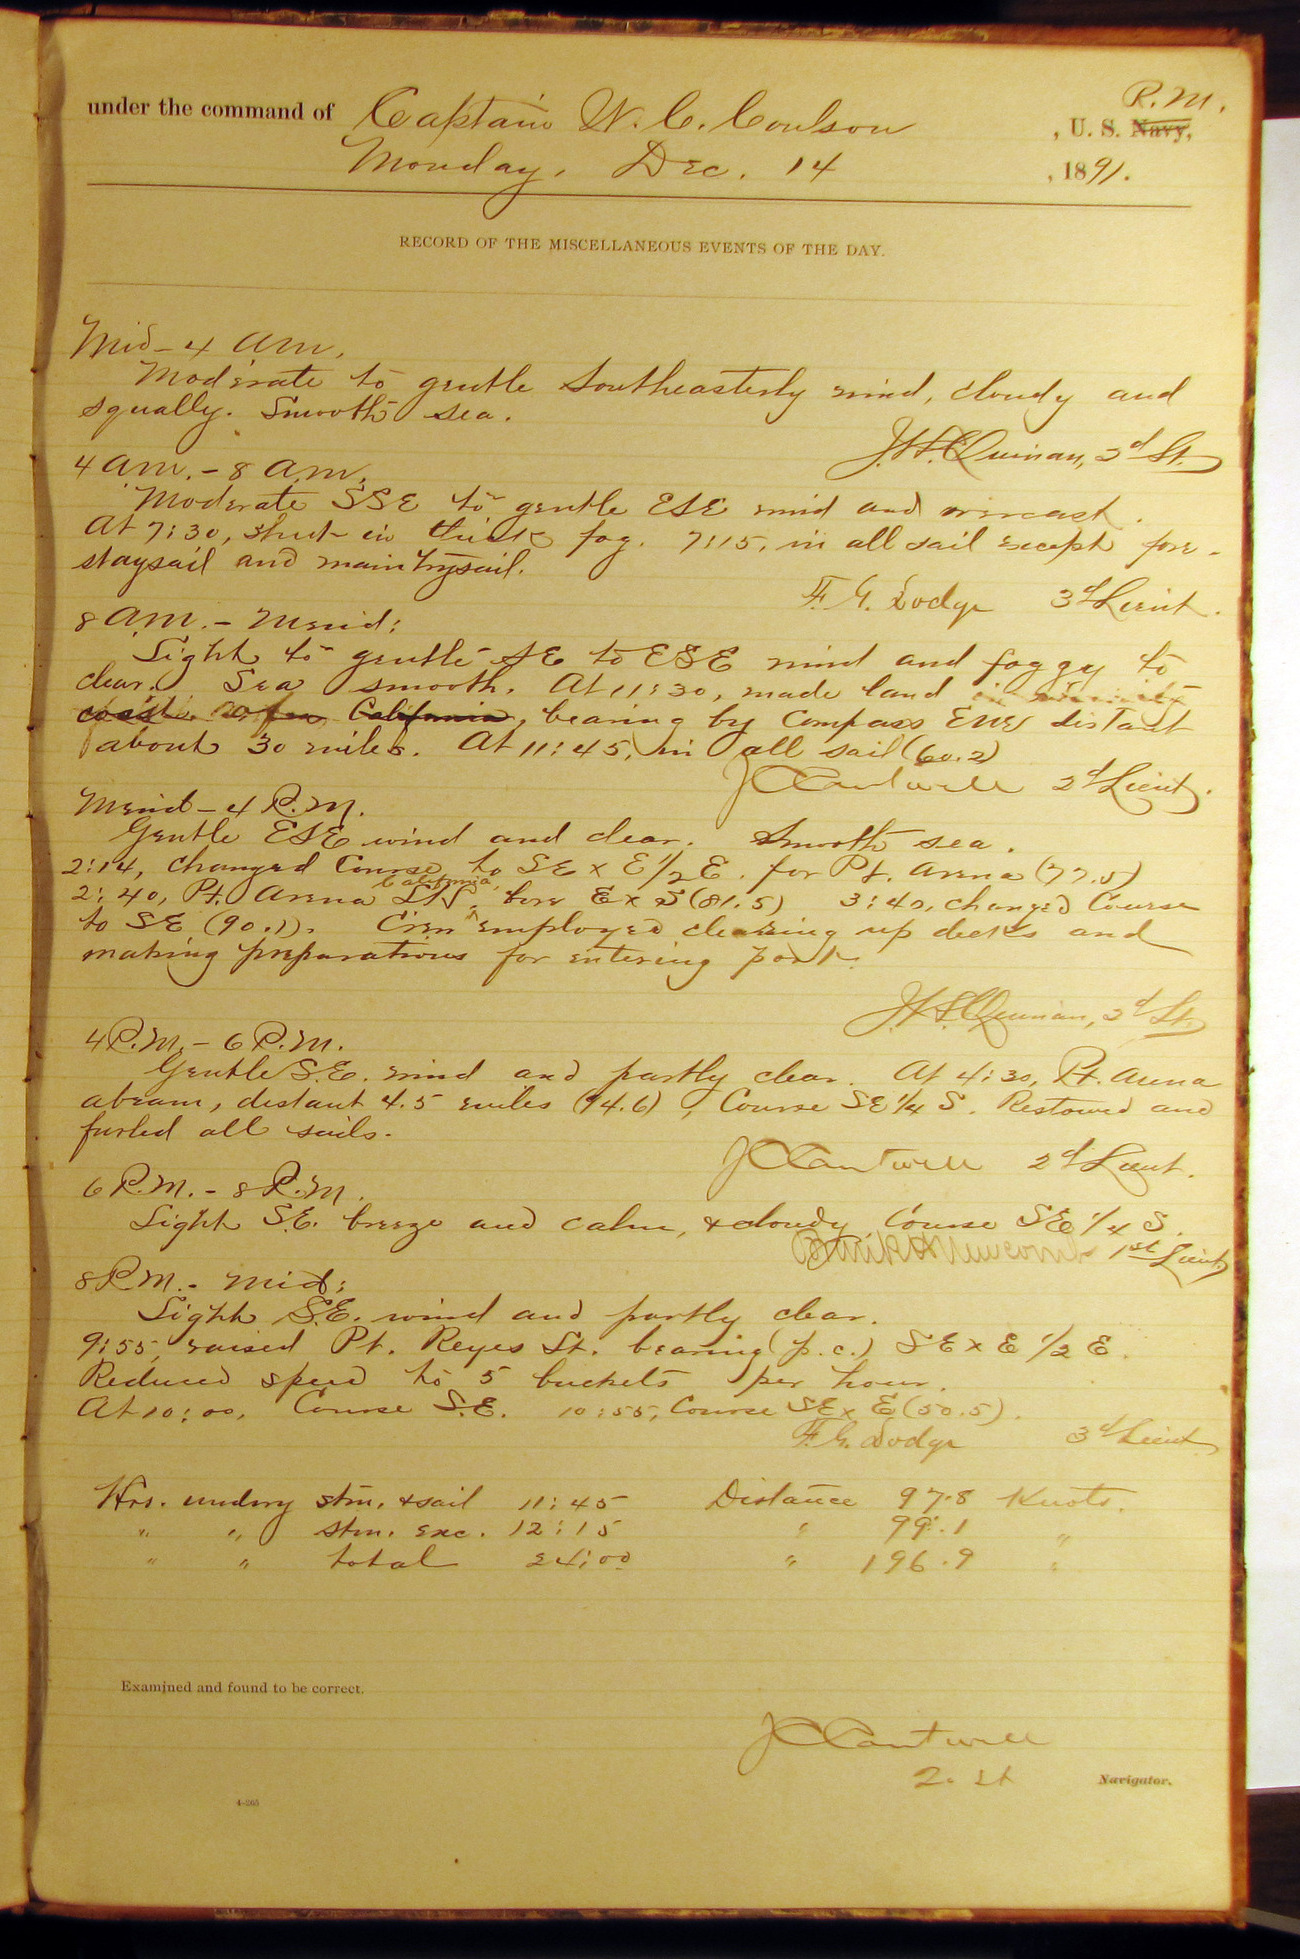 R.M.
under the command of Captain W. C. Coulson, U. S. Navy,
Monday, Dec. 14, 1891.
RECORD OF THE MISCELLANEOUS EVENTS OF THE DAY.
Mid - 4 am.
Moderate to gentle Southeasterly wind, cloudy and
squally. Smooth sea.
J.H. Quinan, 2d Lt.
4 am. - 8 am.
Moderate SSE to gentle ESE wind and overcast.
At 7:30, shut in thick fog. 7:15, in all sail except fore-
staysail and main trysail.
F. G. Dodge 3d Lieut.
8 am. - Merid:
Light to gentle SE to ESE wind and foggy to
clear. Sea smooth. At 11:30, made land
coast of California, bearing by Compass distant
about 30 miles. At 11:45, in all sail (60.2)
J C Cantwell 2d Lieut.
Merid - 4 P.M.
Gentle ESE wind and clear. Smooth sea.
2:14, changed Course to SE x E 1/2 E. for Pt. Arena (77.5)
California,
2:40, Pt. Arena bore E x S (81.5) 3:40, changed Course
to SE (90.1). Crew employed cleaning up decks and
making preparations for entering port.
J.H. Quinan, 2d Lt.
4 P.M. - 6 P.M.
Gentle S.E. wind and partly clear. At 4:30, Pt. Arena
abeam, distant 4.5 miles (94.6), Course SE 1/4 S. Restowed and
furled all sails.
J C Cantwell 2d Lieut.
6 P.M. - 8 P.M.
Light S.E. breeze and calm, & cloudy Course SE 1/4 S.
Frank H Newcomb 1st Lieut
8 P.M. - Mid:
Light S.E. wind and partly clear.
9:55, raised Pt. Reyes Lt. bearing (p.c.) SE x E 1/2 E.
Reduced speed to 5 buckets per hour.
At 10:00, Course S.E. 10:55, Course SE x E (50.5).
F. G. Dodge 3d Lieut
Hrs. undwy stm. & sail 11:45 Distance 97.8 Knots.
" " stm. exc. 12:15 " 99.1 "
" " total 24:00 " 196.9 "
Examined and found to be correct.
J C Cantwell
2. Lt Navigator.
4-265